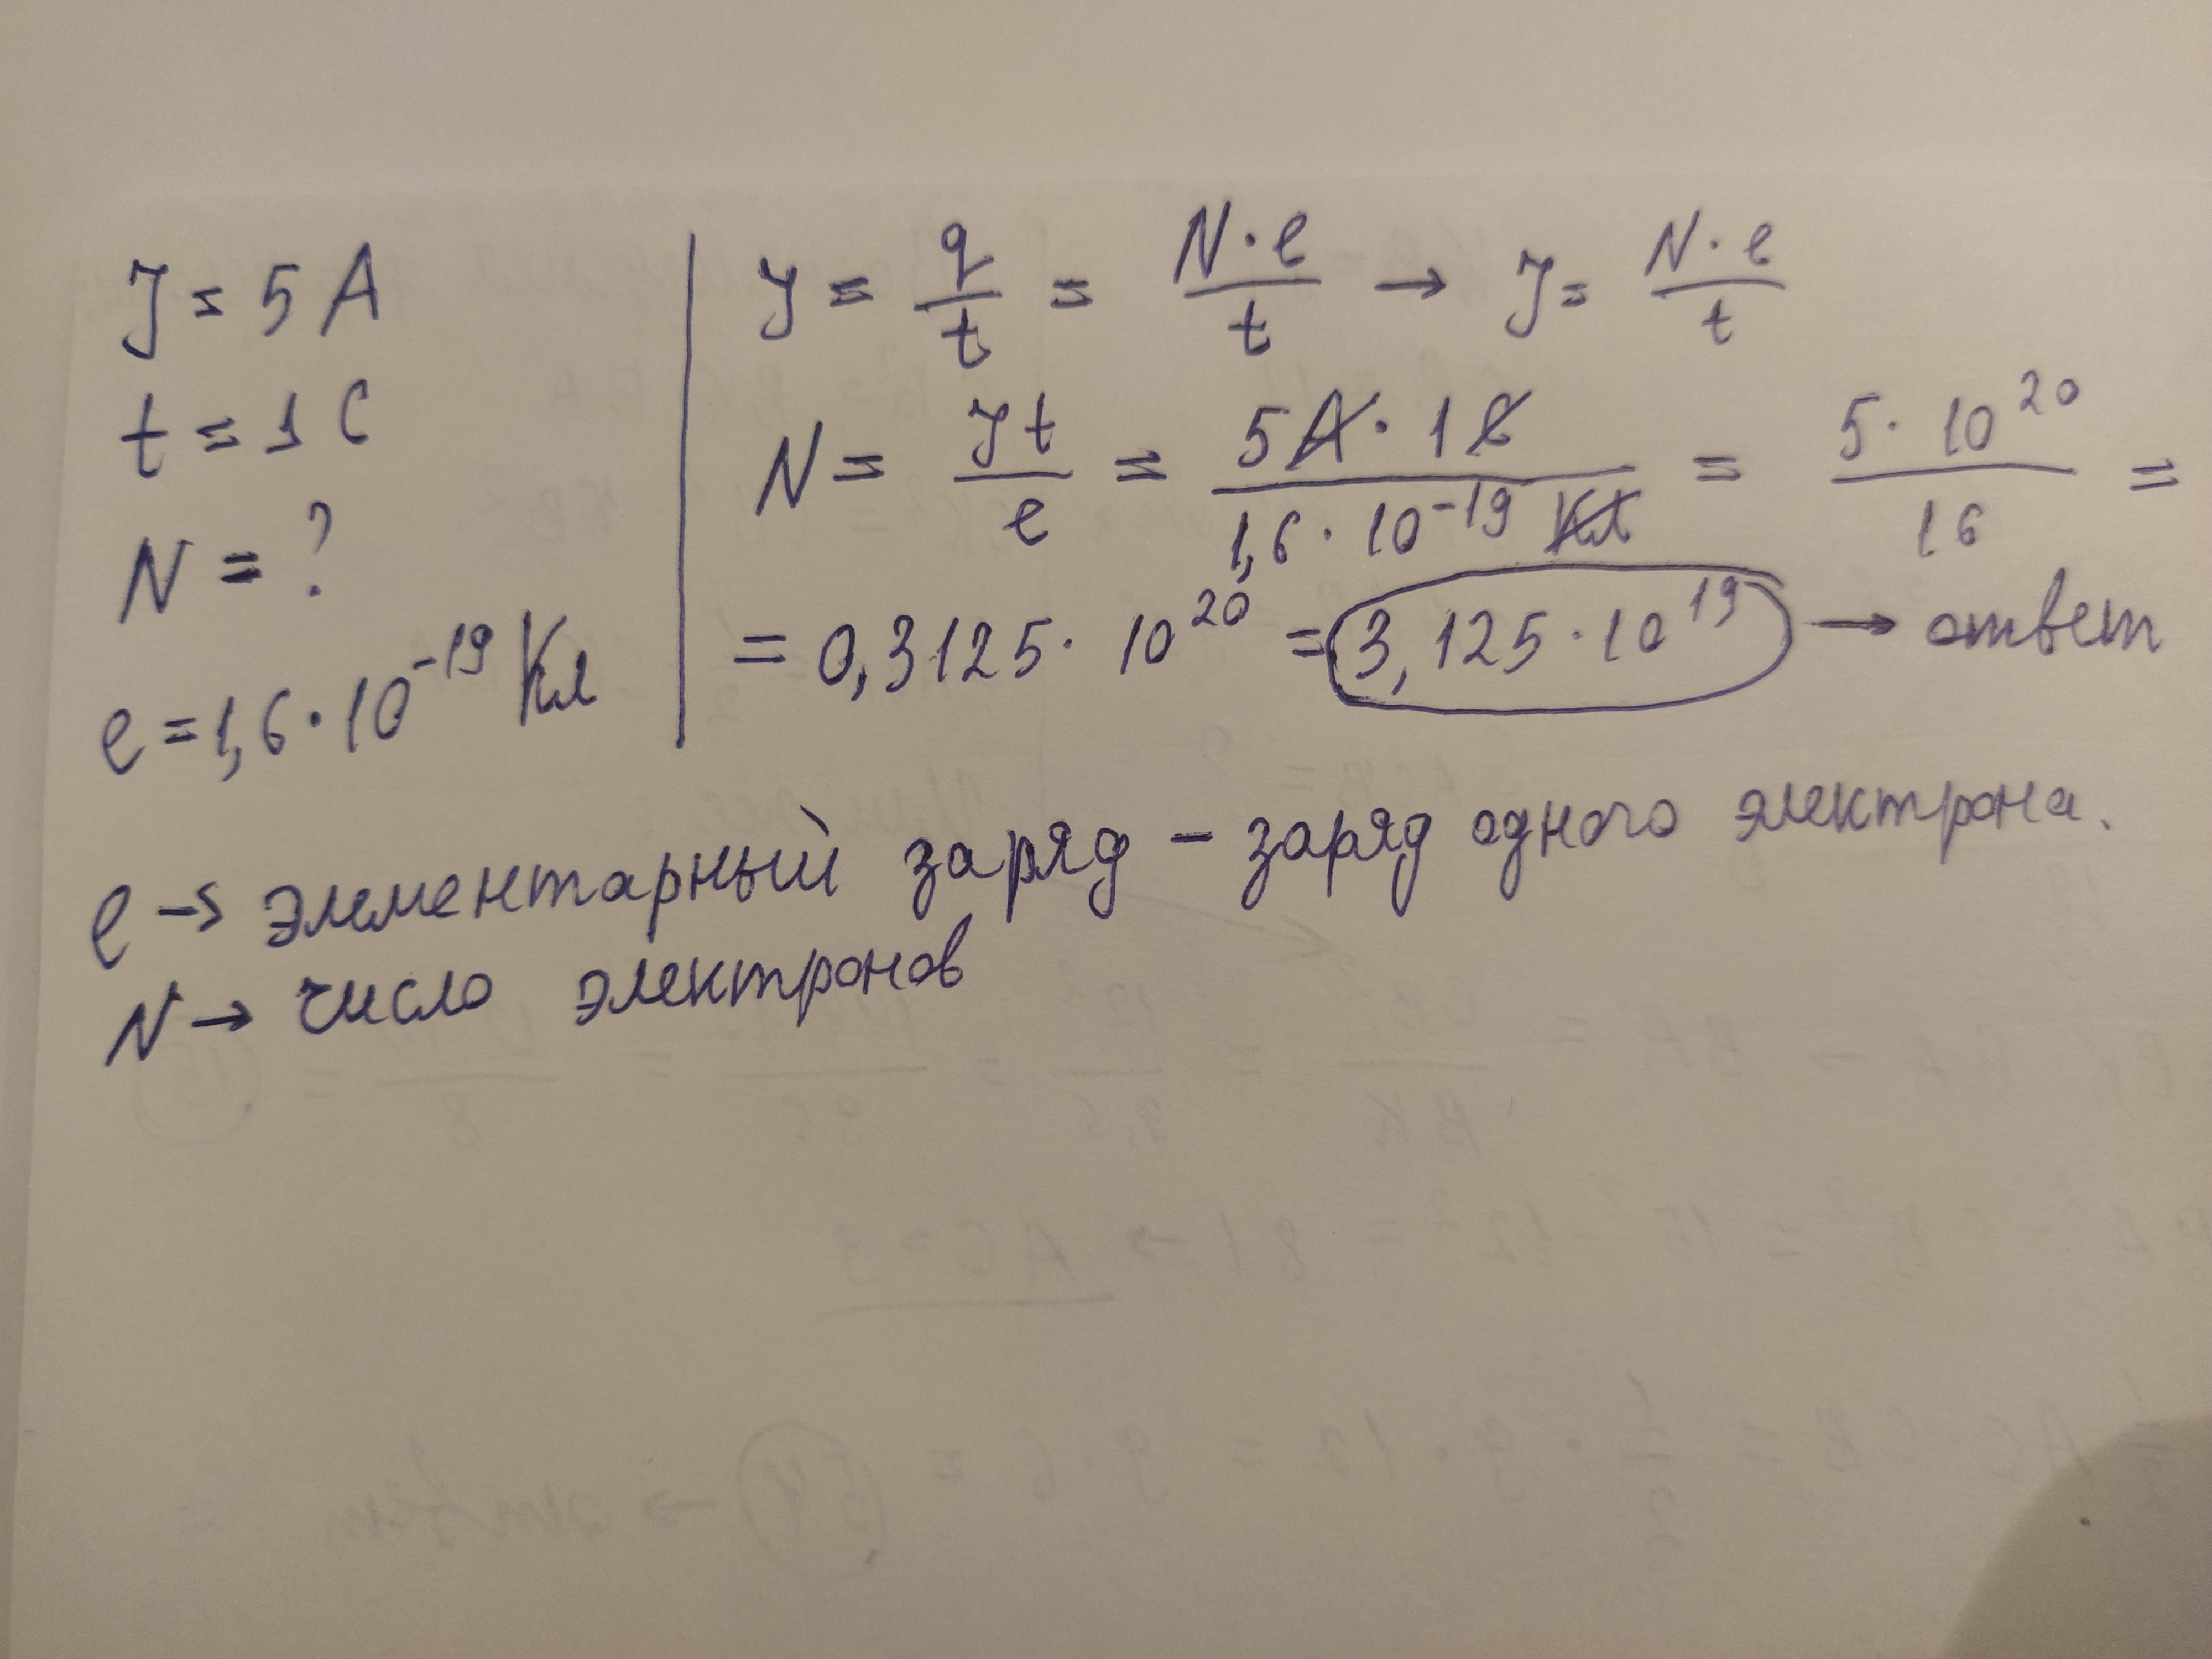 J = 5 A
t = 1 С
N = ?
e = 1,6 · 10^-19 Кл
J = q/t = N·e/t → J = N·e/t
N = Jt/e = 5A · 1с / 1,6 · 10^-19 Кл = 5 · 10^20 / 16 =
= 0,3125 · 10^20 = 3,125 · 10^19 → ответ
e → элементарный заряд – заряд одного электрона.
N → число электронов